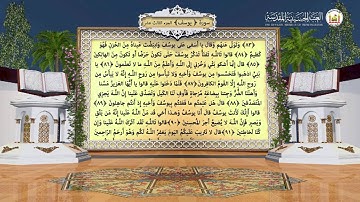 العتبة الحسينية المقدسة
سورة ﴿ يوسف ﴾ الجزء الثالث عشر
(٨٣) وَتَوَلَّى عَنْهُمْ وَقَالَ يَا أَسَفَى عَلَى يُوسُفَ وَابْيَضَّتْ عَيْنَاهُ مِنَ الْحُزْنِ فَهُوَ
كَظِيمٌ (٨٤) قَالُوا تَاللَّهِ تَفْتَأُ تَذْكُرُ يُوسُفَ حَتَّى تَكُونَ حَرَضًا أَوْ تَكُونَ مِنَ الْهَالِكِينَ
(٨٥) قَالَ إِنَّمَا أَشْكُو بَثِّي وَحُزْنِي إِلَى اللَّهِ وَأَعْلَمُ مِنَ اللَّهِ مَا لَا تَعْلَمُونَ (٨٦) يَا
بَنِيَّ اذْهَبُوا فَتَحَسَّسُوا مِنْ يُوسُفَ وَأَخِيهِ وَلَا تَيْأَسُوا مِنْ رَوْحِ اللَّهِ إِنَّهُ لَا يَيْأَسُ مِنْ
رَوْحِ اللَّهِ إِلَّا الْقَوْمُ الْكَافِرُونَ (٨٧) فَلَمَّا دَخَلُوا عَلَيْهِ قَالُوا يَا أَيُّهَا الْعَزِيزُ مَسَّنَا
وَأَهْلَنَا الضُّرُّ وَجِئْنَا بِبِضَاعَةٍ مُزْجَاةٍ فَأَوْفِ لَنَا الْكَيْلَ وَتَصَدَّقْ عَلَيْنَا إِنَّ اللَّهَ يَجْزِي
الْمُتَصَدِّقِينَ (٨٨) قَالَ هَلْ عَلِمْتُمْ مَا فَعَلْتُمْ بِيُوسُفَ وَأَخِيهِ إِذْ أَنْتُمْ جَاهِلُونَ (٨٩)
قَالُوا أَإِنَّكَ لَأَنْتَ يُوسُفُ قَالَ أَنَا يُوسُفُ وَهَذَا أَخِي قَدْ مَنَّ اللَّهُ عَلَيْنَا إِنَّهُ مَنْ يَتَّقِ
وَيَصْبِرْ فَإِنَّ اللَّهَ لَا يُضِيعُ أَجْرَ الْمُحْسِنِينَ (٩٠) قَالُوا تَاللَّهِ لَقَدْ آثَرَكَ اللَّهُ عَلَيْنَا وَإِنْ
كُنَّا لَخَاطِئِينَ (٩١) قَالَ لَا تَثْرِيبَ عَلَيْكُمُ الْيَوْمَ يَغْفِرُ اللَّهُ لَكُمْ وَهُوَ أَرْحَمُ الرَّاحِمِينَ